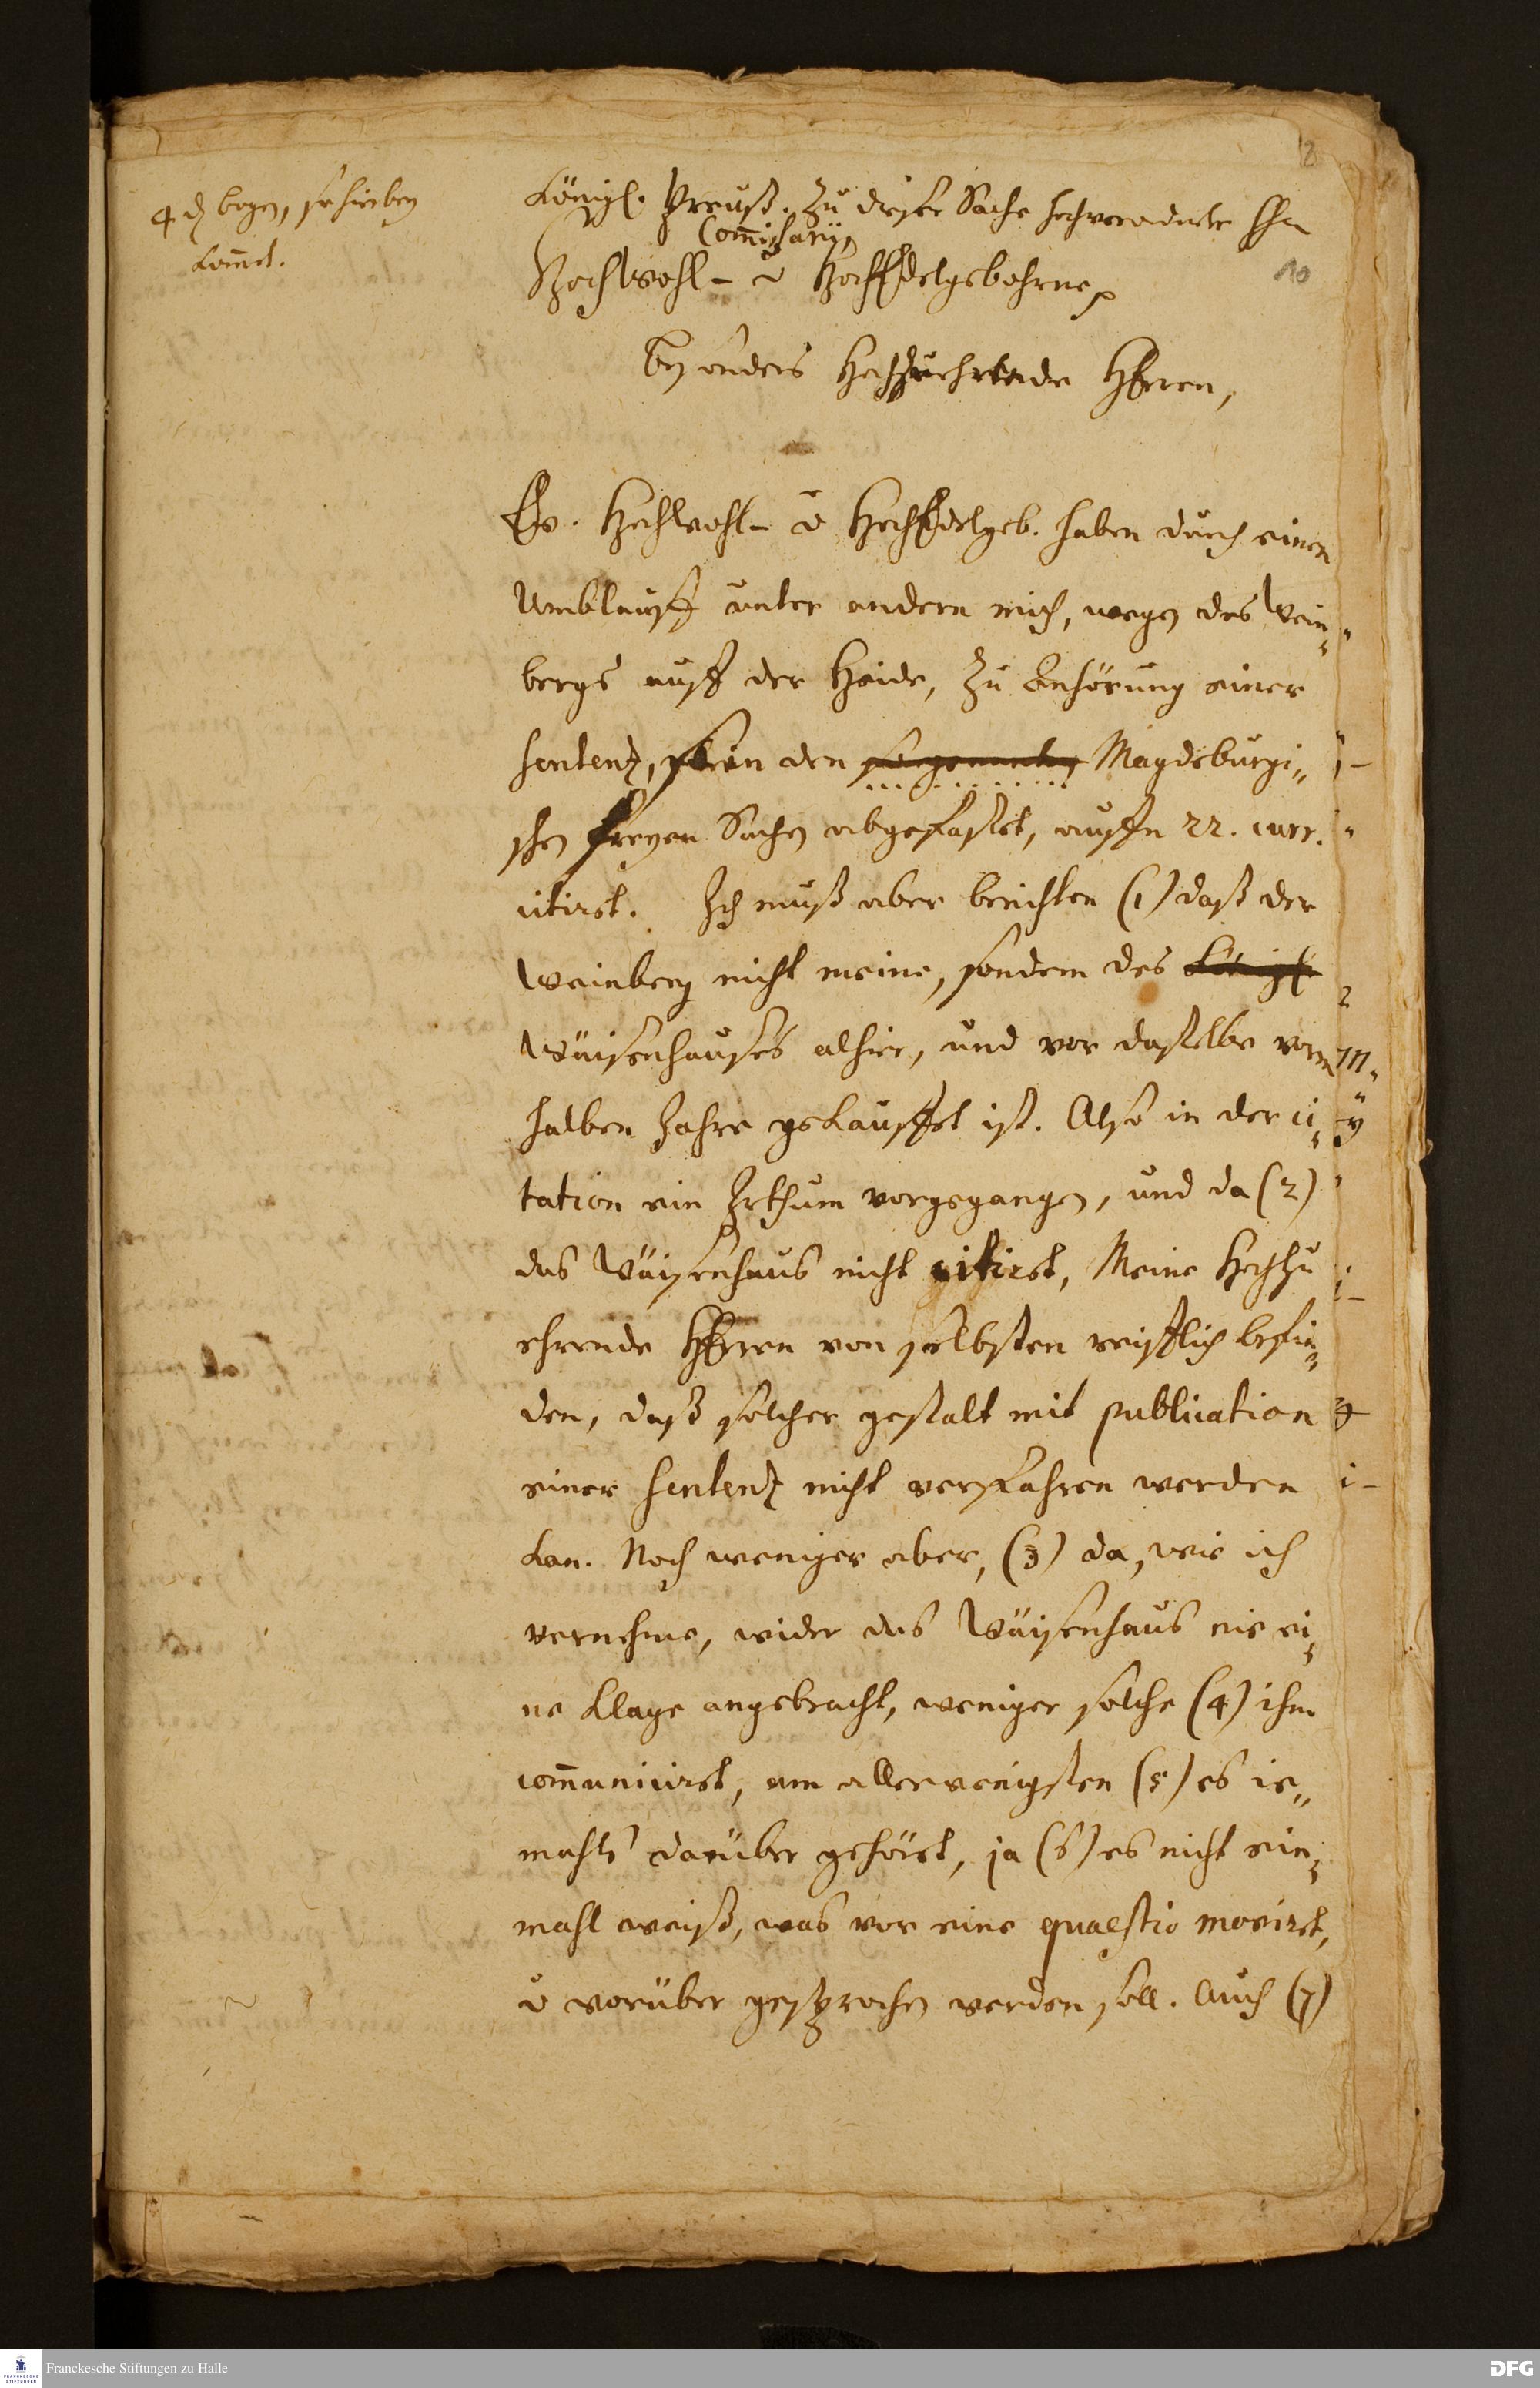 8
10
4 d bogen, so hierbey
kom̄t.
Königl. Preuß. zu dieser Sache hochverordnete HEn
Com̄issarii,
HochWohl- u HochEdelgebohrne,
besonders Hochzuehrende HErren,
Ew. Hochwohl- u HochEdelgeb. haben durch einen
Umblauff unter andern mich, wegen des Wein„
bergs auff der Heide, zu Anhörung einer
Sentenz, so in den sogenanten Magdeburgi„
schen freyen Sachen abgefasset, auffn 22. curr.
citiret. Ich muß aber berichten (1) daß der
Weinberg nicht meine, sondern des Königl
Wäisenhauses alhier, und vor dasselbe vorm
halben Jahre gekauffet ist. Also in der ci„
tation ein Irthum vorgegangen, und da (2)
das Wäisenhaus nicht citiret, Meine Hochzu
ehrende HErren von selbsten reifflich befin„
den, daß solcher gestalt mit publication
einer Sentenz nicht verfahren werden
kan. Noch weniger aber, (3) da, wie ich
vernehme, wider das Wäisenhaus nie ei„
ne Klage angebracht, weniger solche (4) ihm
com̄uniciret, am allerwenigsten (5) es ie„
mahls darüber gehöret, ja (6) es nicht ein„
mahl weiß, was vor eine quaestio moviret,
u worüber gesprochen werden soll. Auch (7)
Franckesche Stiftungen zu Halle
FRANCKESCHE
STIFTUNGEN
DFG